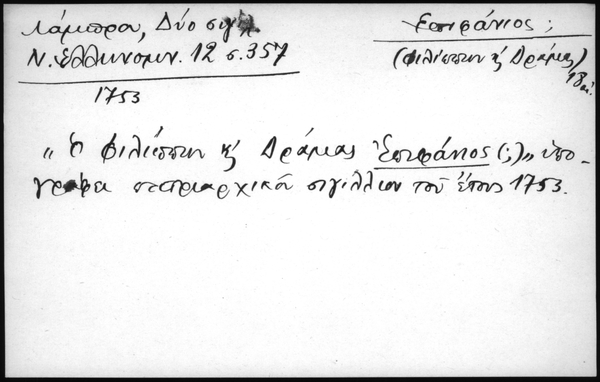 Λάμπρου, Δύο σιγίλ.
Ν. Ἑλληνομν. 12 σ. 357
1753
Ἐπιφάνιος ;
(Φιλίππων κ̀ Δράμας)
18 αἰ.
„ Ὁ Φιλίππων κ̀ Δράμας Ἐπιφάνιος (;) „ ὑπο-
γράφει πατριαρχικὸν σιγίλλιον τοῦ ἔτους 1753.